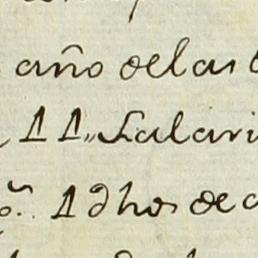 año de las
11,, Salari
1 dhos de